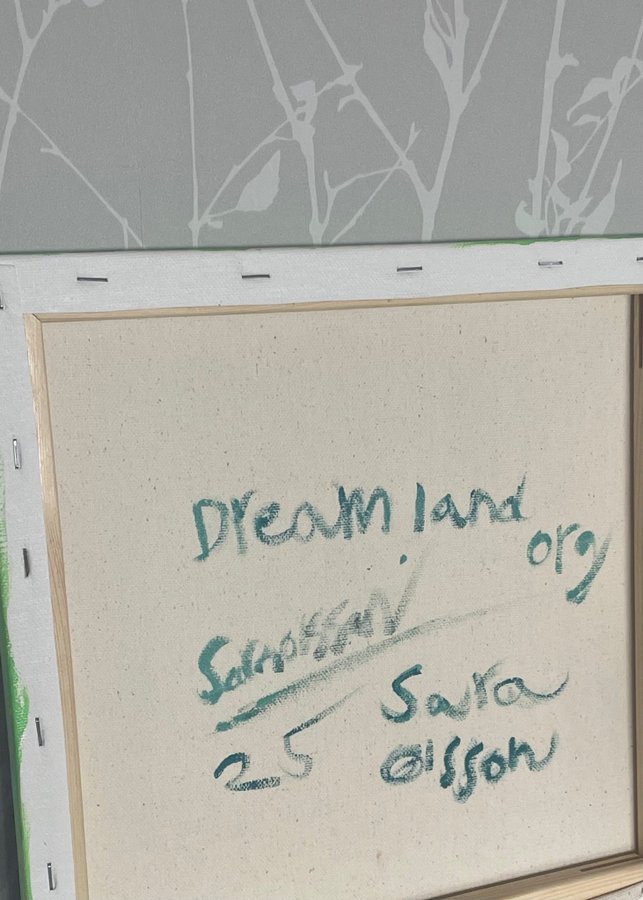 Dream land
org
25
Sara
Olsson